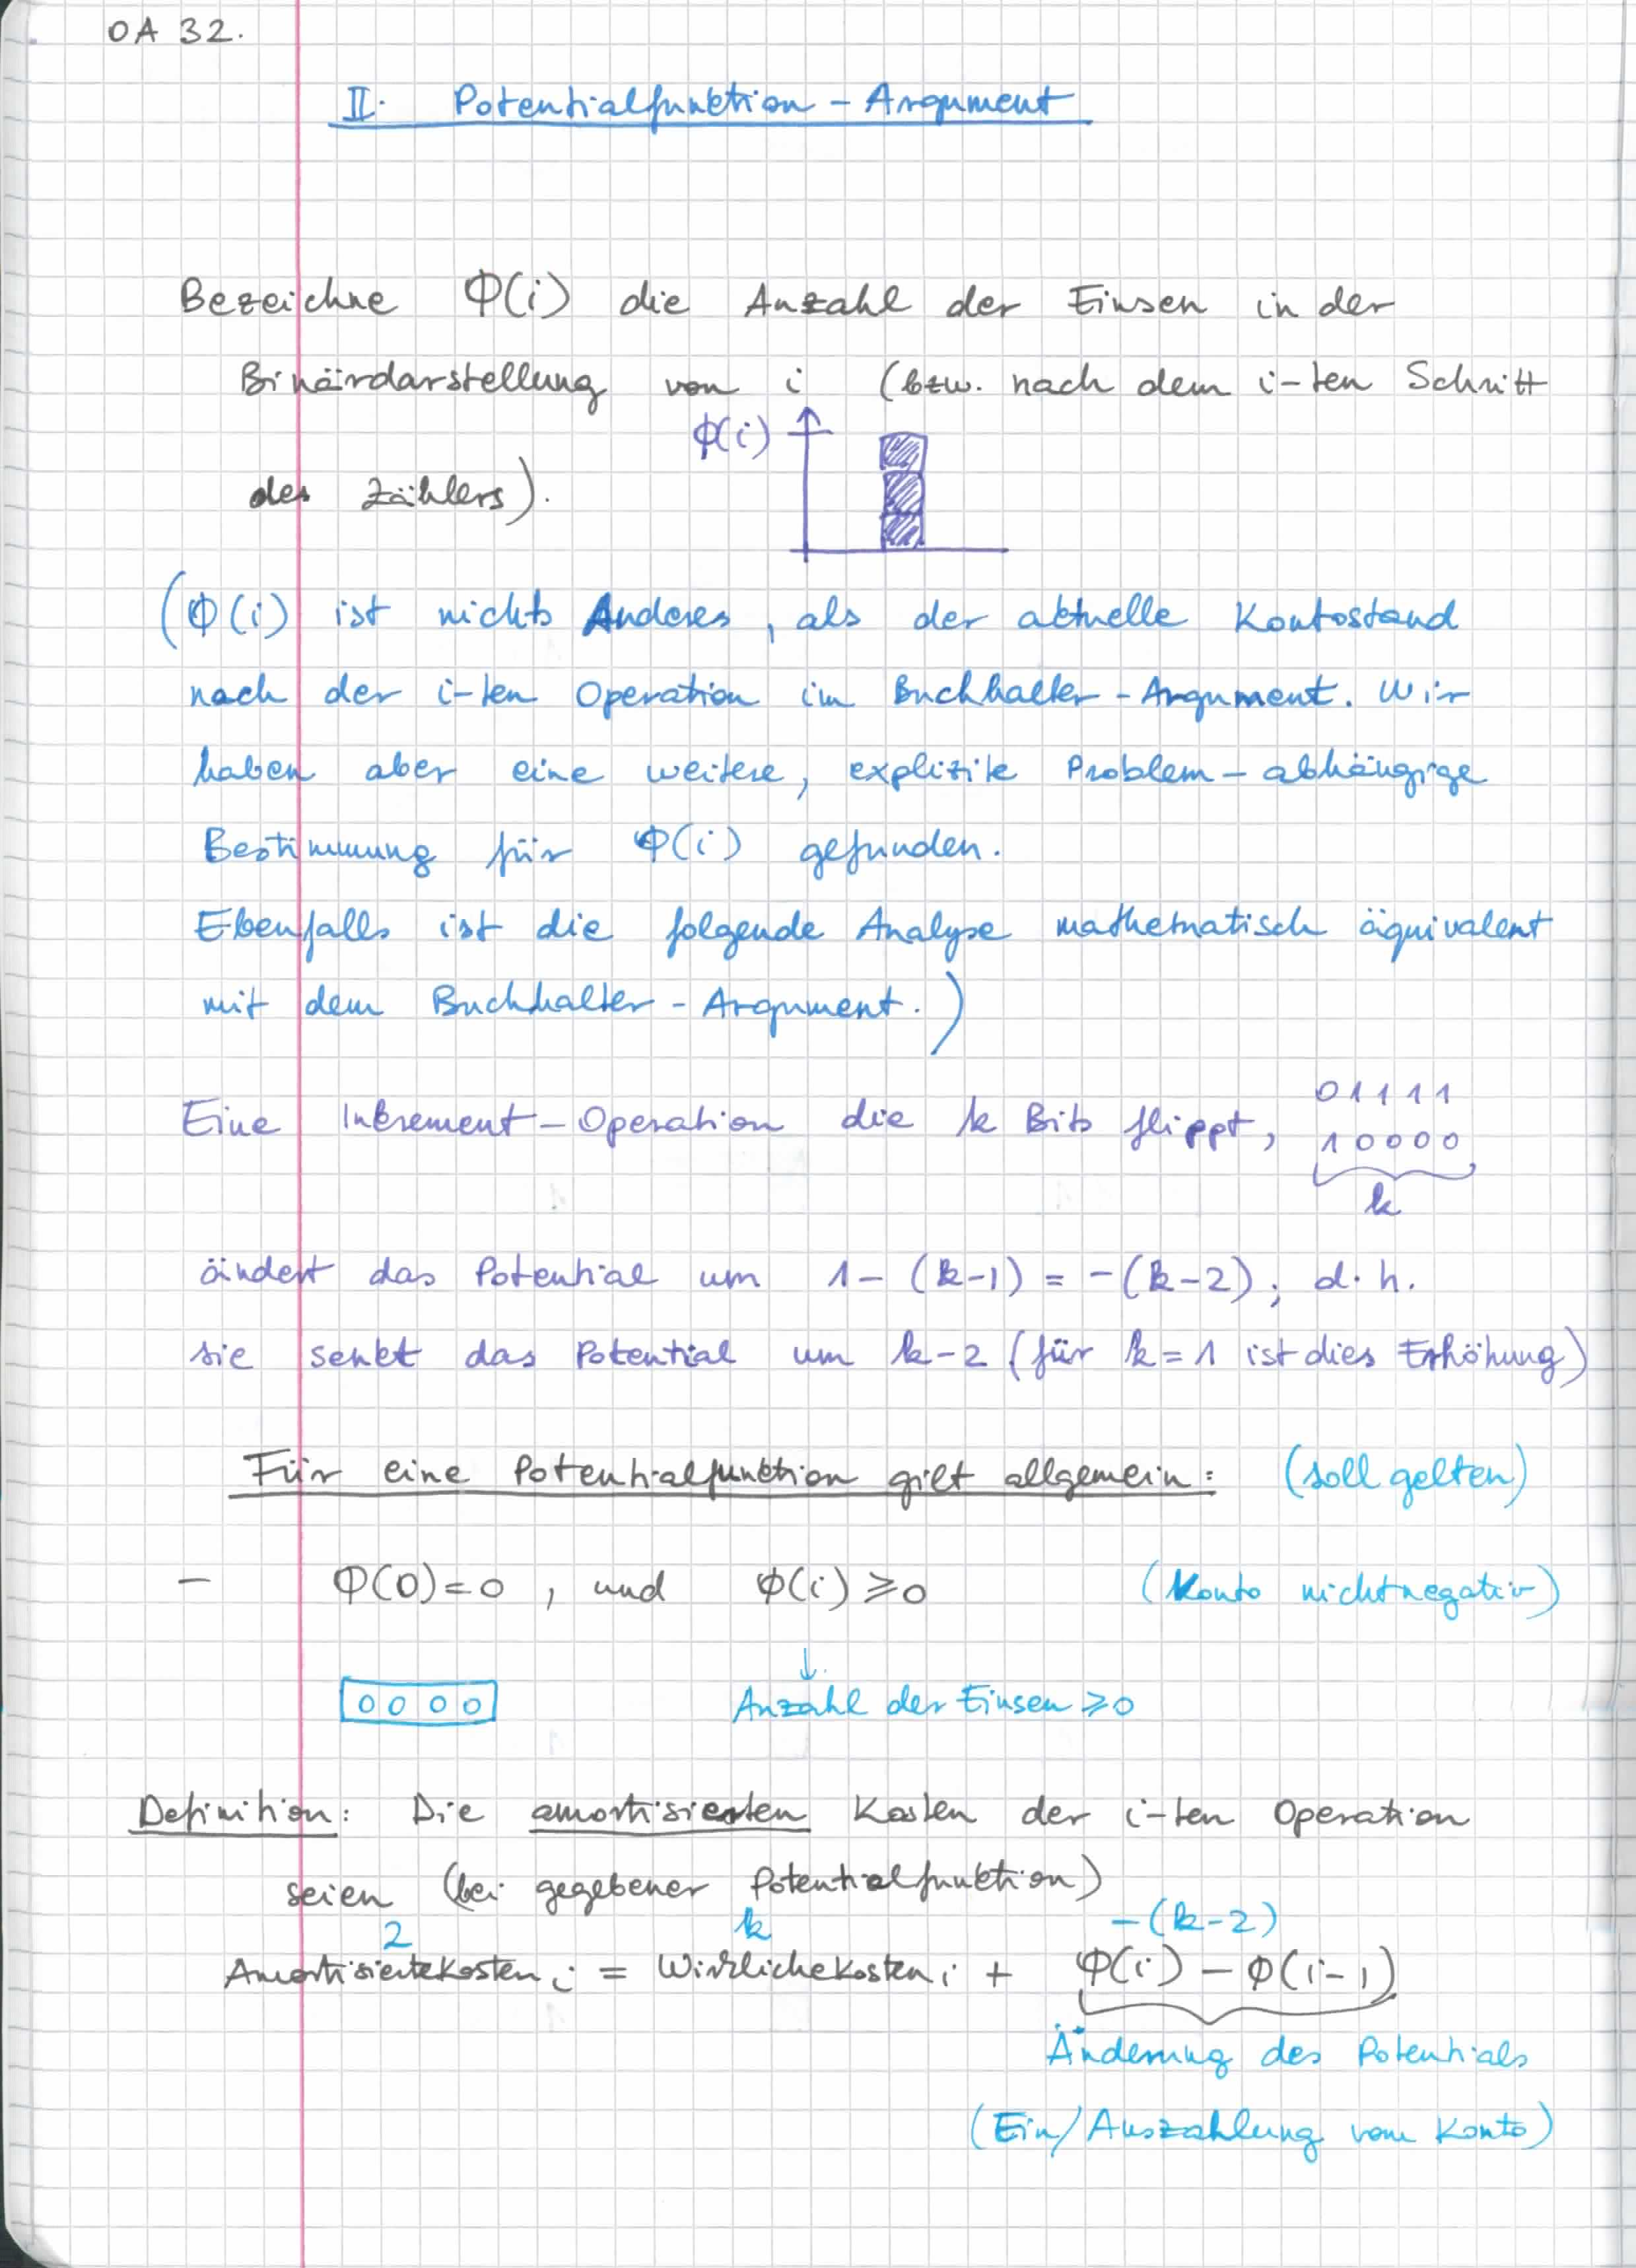 OA 32.
II. Potentialfunktion - Argument
Bezeichne Φ(i) die Anzahl der Einsen in der
Binärdarstellung von i (bzw. nach dem i-ten Schritt
Φ(i)
des Zählers).
(Φ(i) ist nichts Anderes, als der aktuelle Kontostand
nach der i-ten Operation im Buchhalter-Argument. Wir
haben aber eine weitere, explizite Problem-abhängige
Bestimmung für Φ(i) gefunden.
Ebenfalls ist die folgende Analyse mathematisch äquivalent
mit dem Buchhalter-Argument.)
01111
Eine Inkrement-Operation die k Bits flippt, 10000
k
ändert das Potential um 1-(k-1) = -(k-2); d.h.
sie senkt das Potential um k-2 (für k=1 ist dies Erhöhung)
Für eine Potentialfunktion gilt allgemein: (soll gelten)
- Φ(0)=0, und Φ(i)≥0 (Konto nichtnegativ)
↓
0000 Anzahl der Einsen ≥0
Definition: Die amortisierten Kosten der i-ten Operation
seien (bei gegebener Potentialfunktion)
2 k -(k-2)
AmortisierteKosten_i = WirklicheKosten_i + Φ(i) - Φ(i-1)
Änderung des Potentials
(Ein/Auszahlung vom Konto)